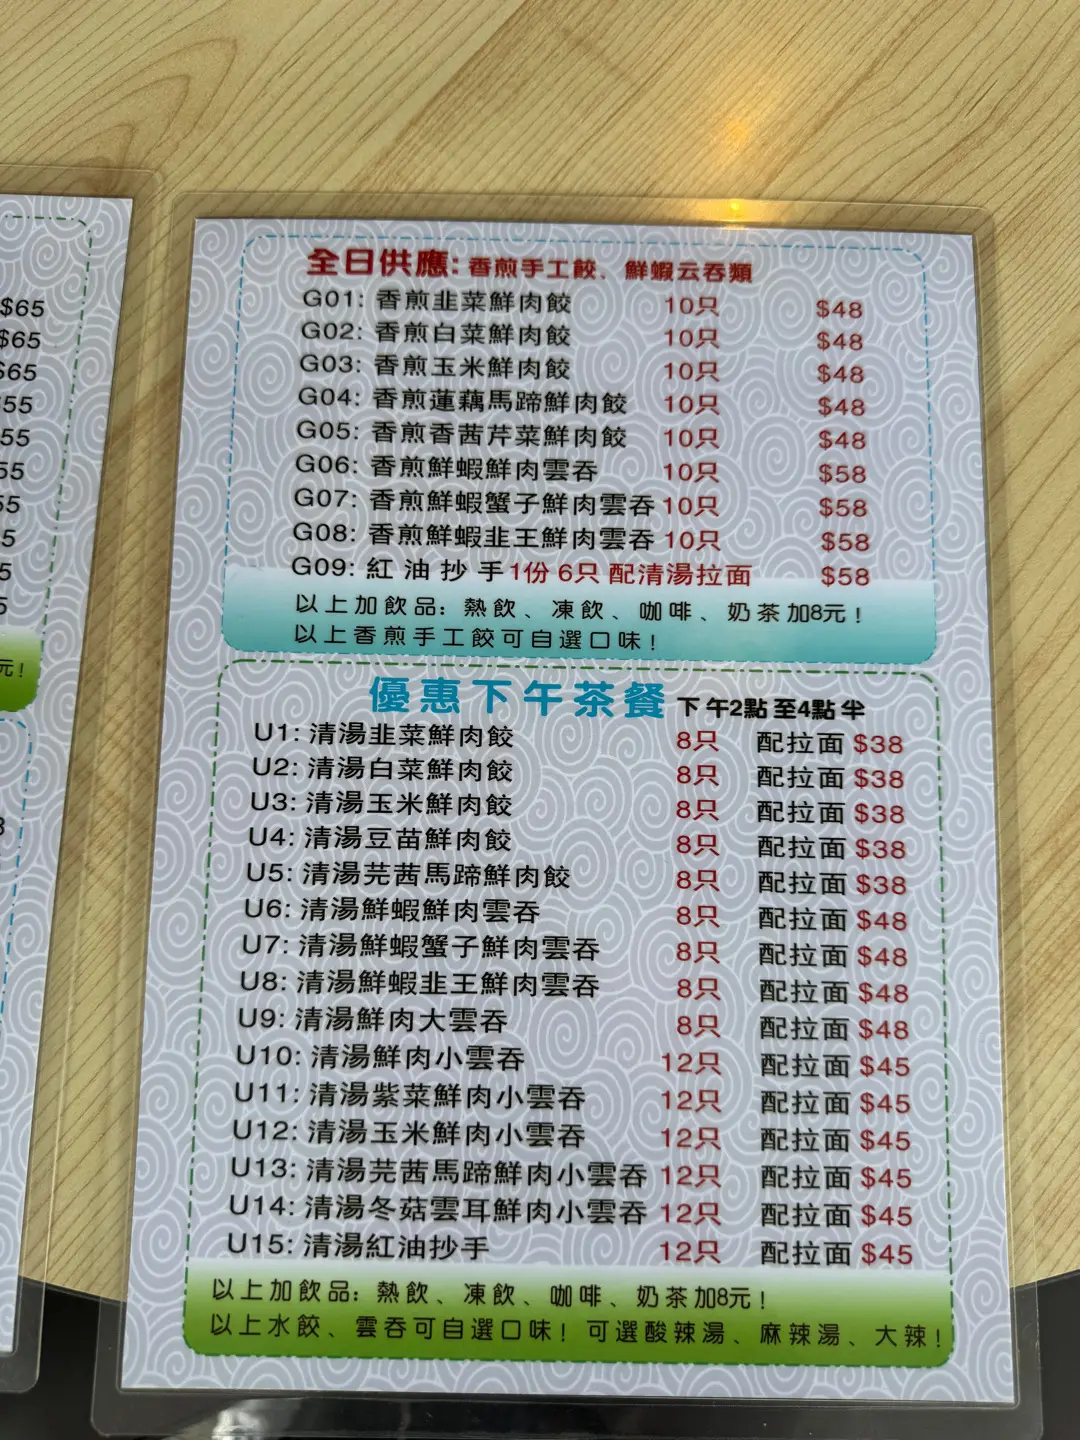 $65
$65
$65
$55
55
55
55
5
5
5
元!
全日供應: 香煎手工餃、鮮蝦云吞類
G01: 香煎韭菜鮮肉餃 10只 $48
G02: 香煎白菜鮮肉餃 10只 $48
G03: 香煎玉米鮮肉餃 10只 $48
G04: 香煎蓮藕馬蹄鮮肉餃 10只 $48
G05: 香煎香茜芹菜鮮肉餃 10只 $48
G06: 香煎鮮蝦鮮肉雲吞 10只 $58
G07: 香煎鮮蝦蟹子鮮肉雲吞 10只 $58
G08: 香煎鮮蝦韭王鮮肉雲吞 10只 $58
G09: 紅油抄手 1份 6只 配清湯拉面 $58
以上加飲品: 熱飲、凍飲、咖啡、奶茶加8元!
以上香煎手工餃可自選口味!
優惠下午茶餐 下午2點至4點半
U1: 清湯韭菜鮮肉餃 8只 配拉面 $38
U2: 清湯白菜鮮肉餃 8只 配拉面 $38
U3: 清湯玉米鮮肉餃 8只 配拉面 $38
U4: 清湯豆苗鮮肉餃 8只 配拉面 $38
U5: 清湯芫茜馬蹄鮮肉餃 8只 配拉面 $38
U6: 清湯鮮蝦鮮肉雲吞 8只 配拉面 $48
U7: 清湯鮮蝦蟹子鮮肉雲吞 8只 配拉面 $48
U8: 清湯鮮蝦韭王鮮肉雲吞 8只 配拉面 $48
U9: 清湯鮮肉大雲吞 8只 配拉面 $48
U10: 清湯鮮肉小雲吞 12只 配拉面 $45
U11: 清湯紫菜鮮肉小雲吞 12只 配拉面 $45
U12: 清湯玉米鮮肉小雲吞 12只 配拉面 $45
U13: 清湯芫茜馬蹄鮮肉小雲吞 12只 配拉面 $45
U14: 清湯冬菇雲耳鮮肉小雲吞 12只 配拉面 $45
U15: 清湯紅油抄手 12只 配拉面 $45
以上加飲品: 熱飲、凍飲、咖啡、奶茶加8元!
以上水餃、雲吞可自選口味! 可選酸辣湯、麻辣湯、大辣!